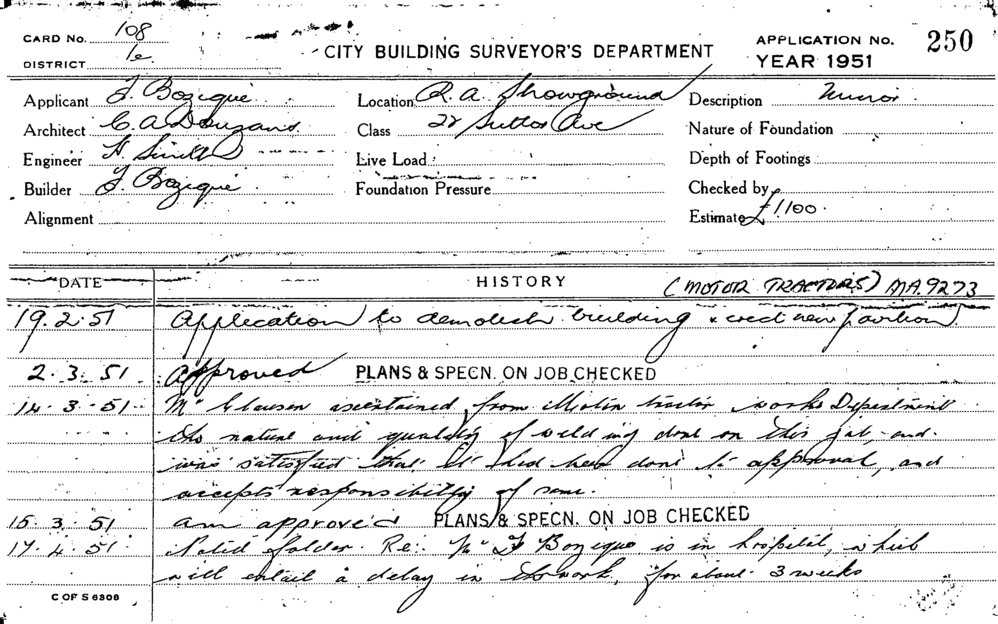 CARD No. 108
DISTRICT 1e
CITY BUILDING SURVEYOR'S DEPARTMENT
APPLICATION No. 250
YEAR 1951
Applicant J. Bozique Location R. A. Showground Description Minor
Architect C A Class 22 Suttor Ave Nature of Foundation
Engineer H. Smith Live Load Depth of Footings
Builder J. Bozique Foundation Pressure Checked by
Alignment Estimate £1100
DATE HISTORY (MOTOR TRACTORS) MA.9273
19.2.51 Application to demolish building & erect new pavilion
2.3.51 Approved PLANS & SPECN. ON JOB CHECKED
14.3.51 Mr Clausen ascertained from Motor tractor works Department
the nature and quality of welding done on this job and
was satisfied that it had been done to approval, and
accepts responsibility of same.
15.3.51 am approved PLANS & SPECN. ON JOB CHECKED
17.4.51 Noted folder. Re: Mr J Bozique is in hospital, which
will entail a delay in the work, for about 3 weeks
C OF S 6306